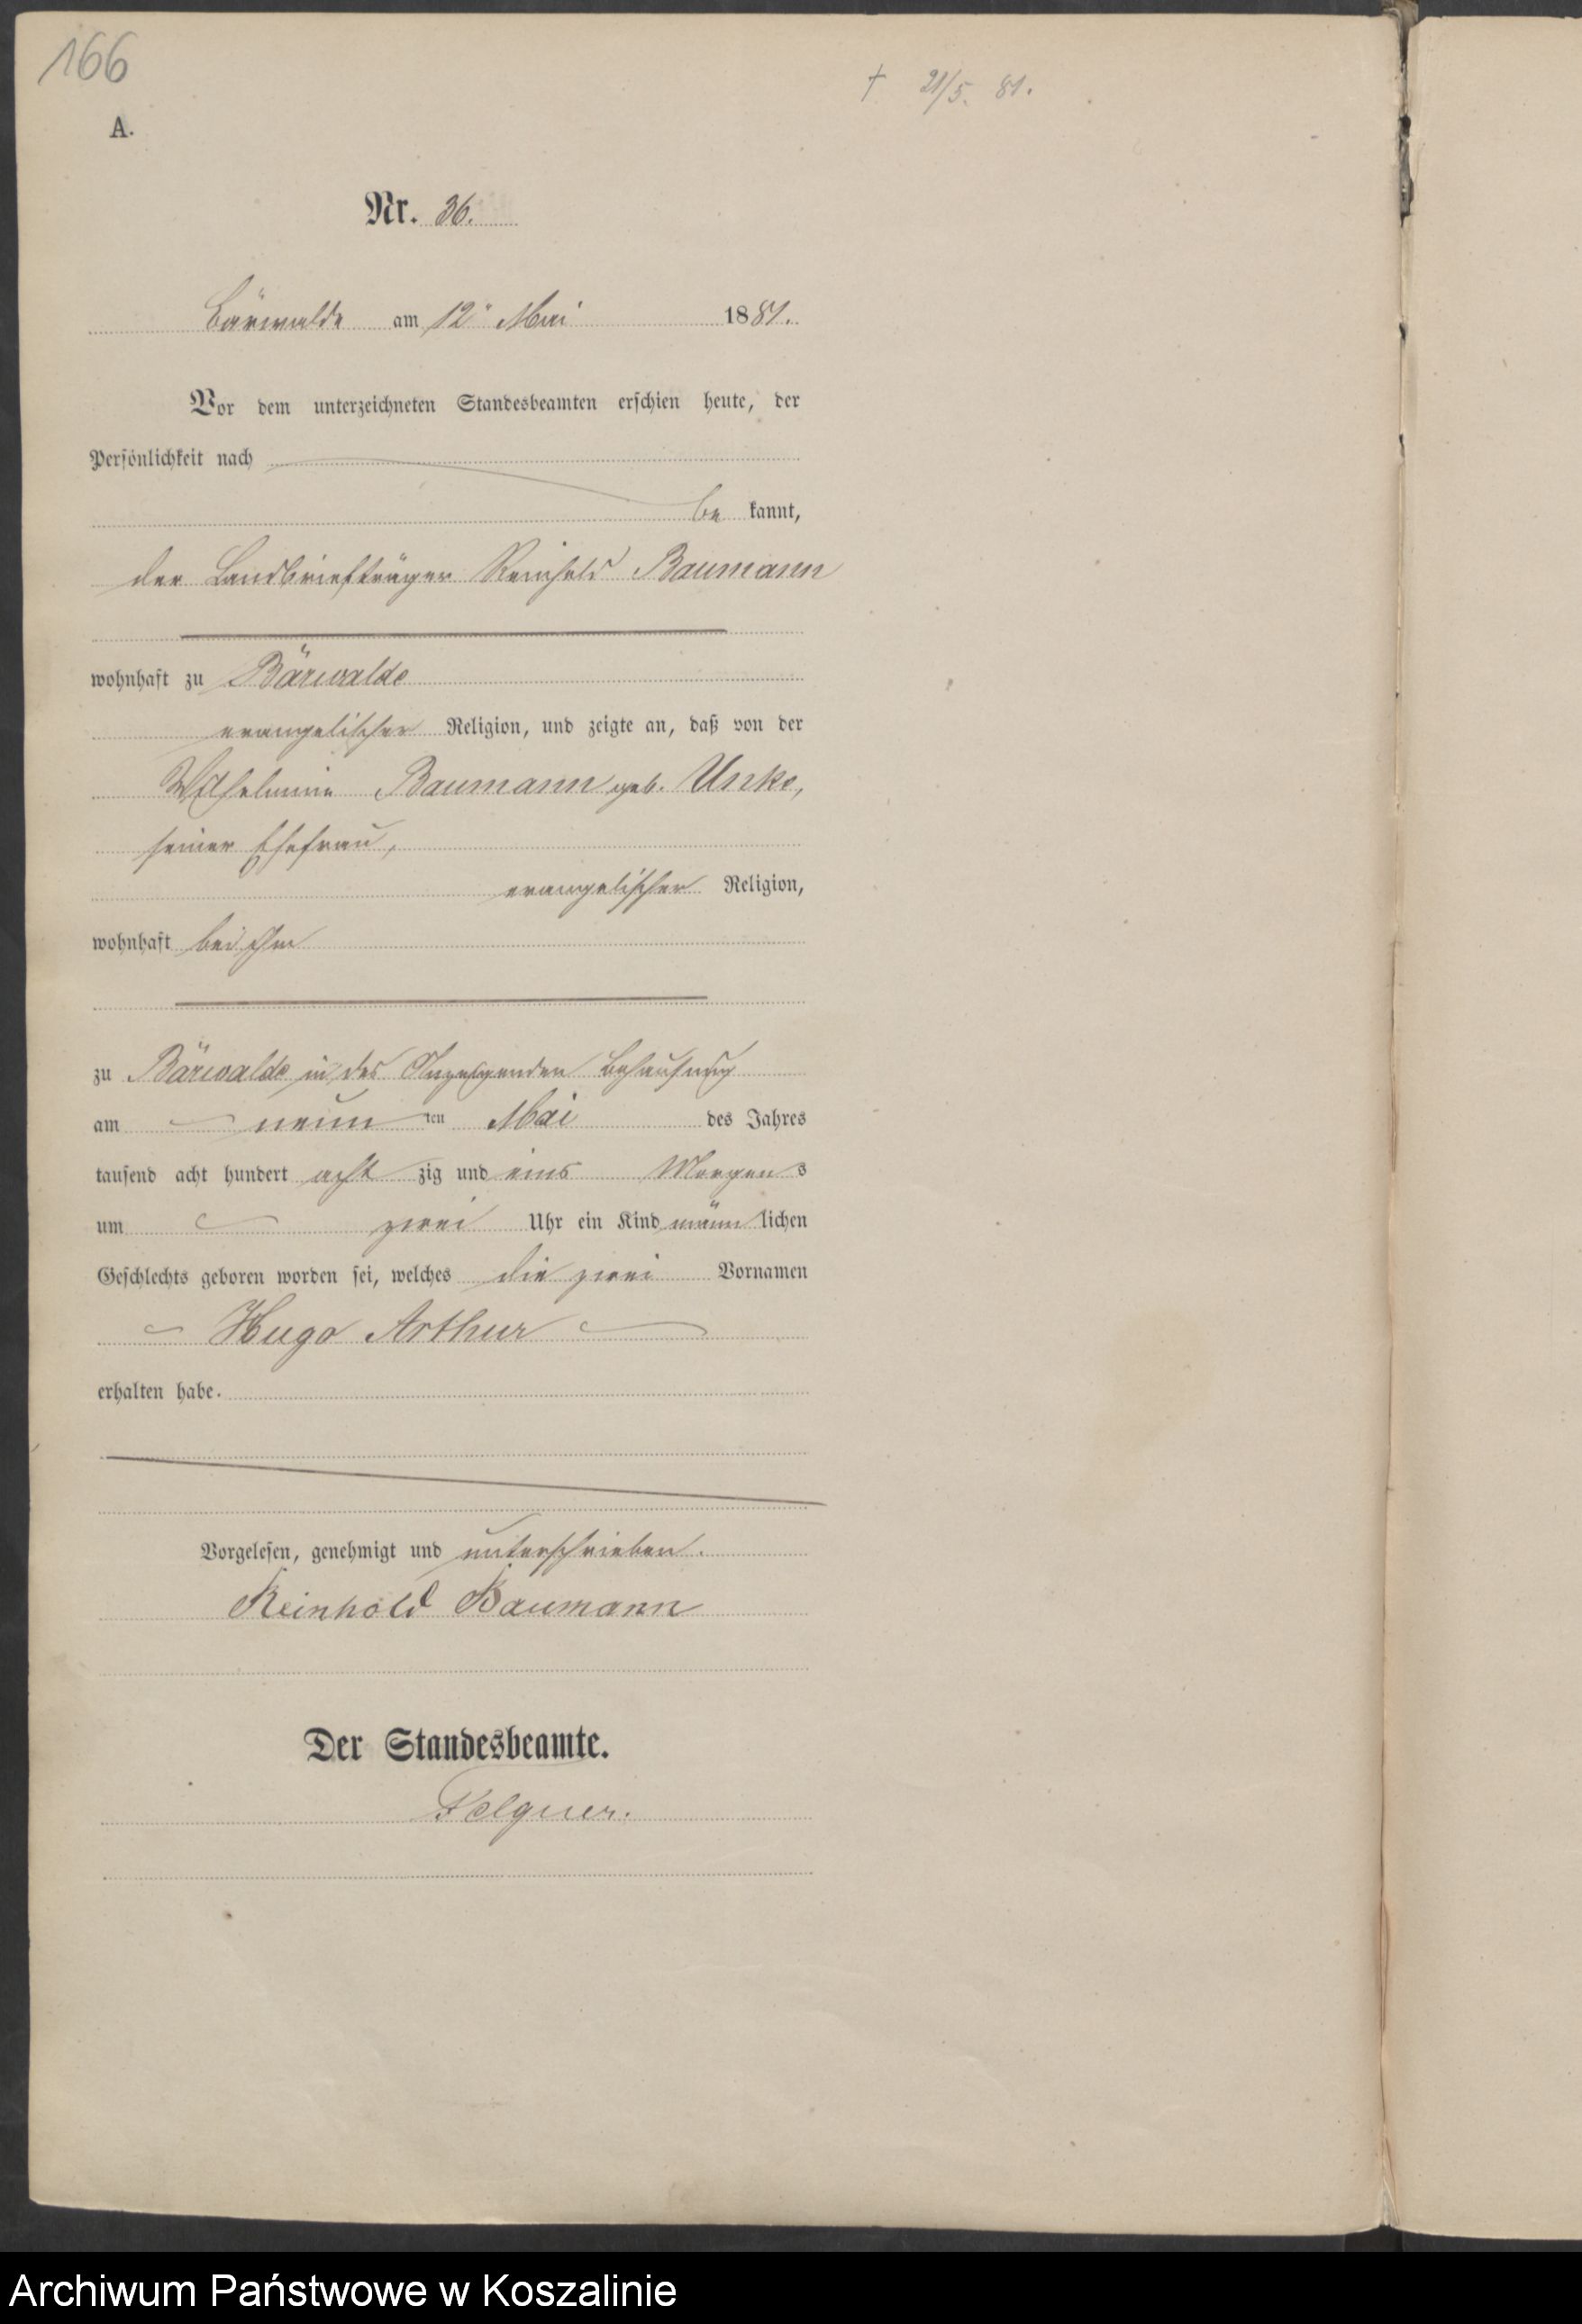 166
† 21/5. 81.
A.
Nr. 36.
Bärwalde am 12ⁿ Mai 1881.
Vor dem unterzeichneten Standesbeamten erschien heute, der
Persönlichkeit nach
be kannt,
der Landbriefträger Reinhold Baumann
wohnhaft zu Bärwalde
evangelischer Religion, und zeigte an, daß von der
Wilhelmine Baumann geb. Unke,
seiner Ehefrau,
evangelischer Religion,
wohnhaft bei ihm
zu Bärwalde in des Anzeigenden Behausung
am neun ten Mai des Jahres
tausend acht hundert acht zig und eins Morgens
um zwei Uhr ein Kind männlichen
Geschlechts geboren worden sei, welches die zwei Vornamen
Hugo Arthur
erhalten habe.
Vorgelesen, genehmigt und unterschrieben.
Reinhold Baumann
Der Standesbeamte.
Felgner.
Archiwum Państwowe w Koszalinie